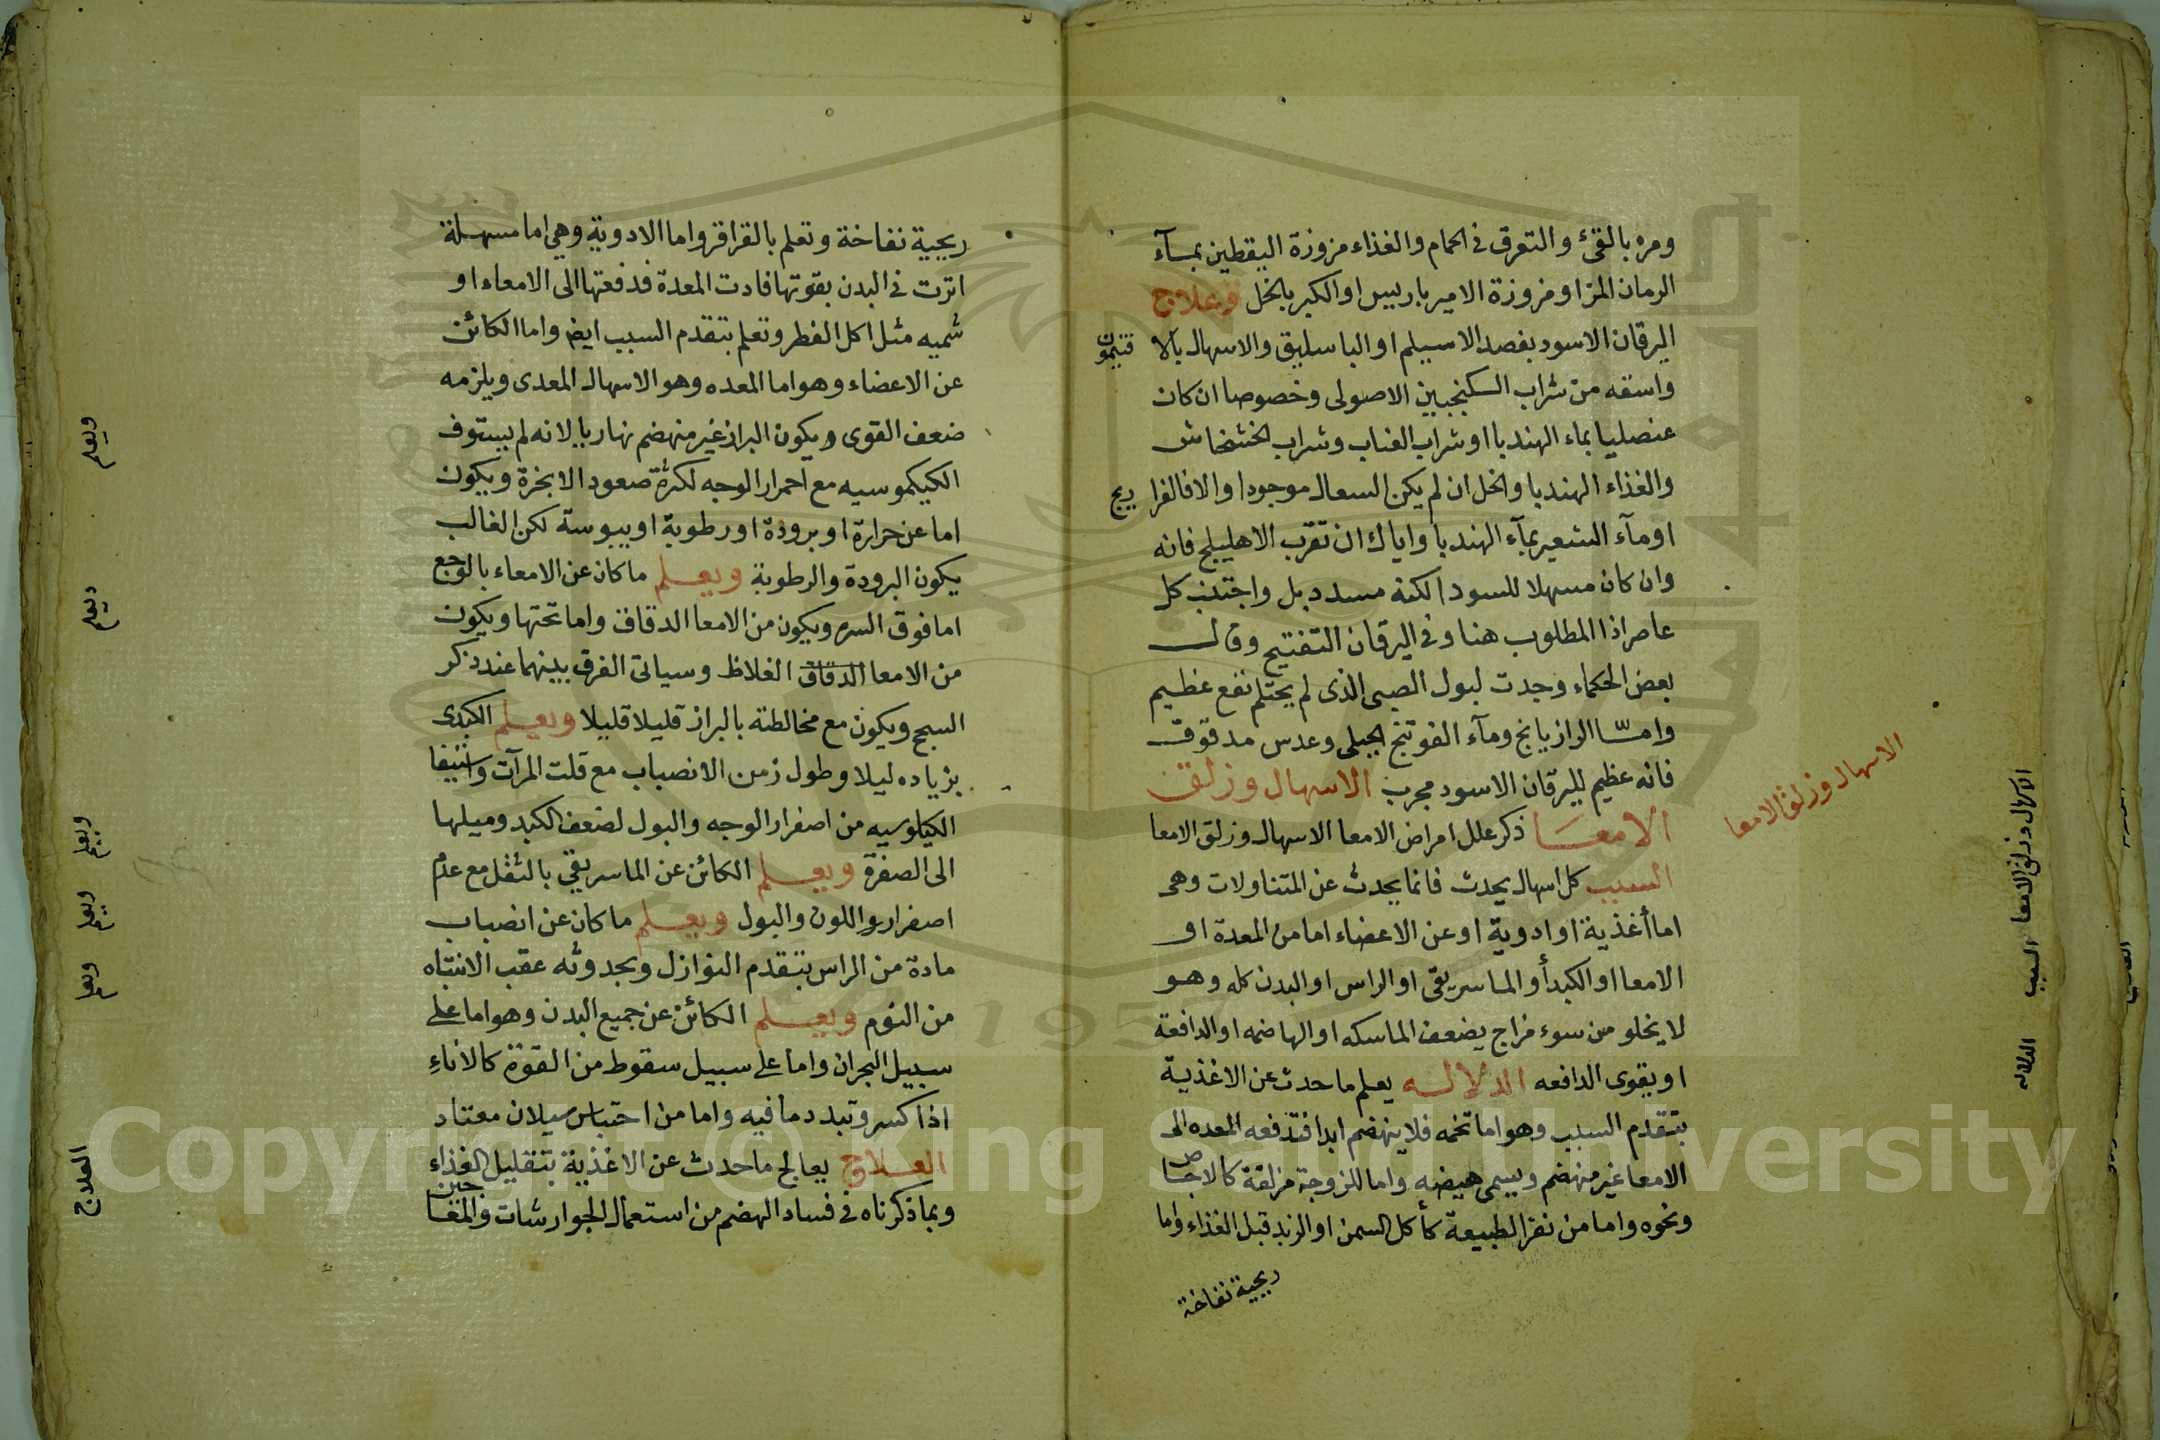 ومره بالقئ والتعرق في الحمام والغذاء مزوزة اليقطين بمآء
الرمان المز او مزوزة الامير باريس او الكبر بالخل وعلاج
اليرقان الاسود بفصد الاسيلم او الباسليق والاسهال بالا فتيمون
واسقه من شراب السكنجبين الاصولى وخصوصا ان كان
عنصليا بماء الهندبا او شراب العناب وشراب الخشخاش
والغذاء الهندبا والخل ان لم يكن السعال موجودا والا فالفرا ريج
او مآء الشعير بمآء الهندبا واياك ان تقرب الاهليلج فانه
وان كان مسهلا للسودا لكنه مسدد بل واجتنب كل
عاصر اذا المطلوب هنا وفى اليرقان التفتيح وقال
بعض الحكماء وجدت لبول الصبى الذى لم يحتلم نفع عظيم
وامّا الرازيانج ومآء الفوتنج الجبلى وعدس مدقوق
فانه عظيم لليرقان الاسود مجرب الاسهال وزلق
الامعا ذكر علل امراض الامعا الاسهال وزلق الامعا
السبب كل اسهال يحدث فانما يحدث عن المتناولات وهى
اما أغذية او ادوية او عن الاعضاء اما من المعدة او
الامعا او الكبد أو الماسريقى او الراس او البدن كله وهو
لا يخلو من سوء مزاج يضعف الماسكه او الهاضمه او الدافعة
او يقوى الدافعه الدلاله يعلم ما حدث عن الاغذية
بتقدم السبب وهو اما تخمه فلا ينهضم ابدا فتدفعه المعده الى
الامعا غير منهضم ويسمى هيضه واما للزوجة مزلقة كالاجاص
ونحوه واما من نفر الطبيعة كأكل السمن او الزبد قبل الغذاء واما
ريحية نفاخة
الاسهال وزلق الامعا
الاسهال وزلق الامعا
السبب
الدلاله
ريحية نفاخة وتعلم بالقراقر واما الادوية وهي اما مسهلة
اثرت في البدن بقوتها فادت المعدة فدفعتها الى الامعاء او
سميه مثل اكل الفطر وتعلم بتقدم السبب ايض واما الكائن
عن الاعضاء وهو اما المعده وهو الاسهال المعدى ويلزمه
ضعف القوى ويكون البراز غير منهضم نهاريا لانه لم يستوف
الكيكموسيه مع احمرار الوجه لكثرة صعود الابخرة ويكون
اما عن حرارة او برودة او رطوبة او يبوسة لكن الغالب
يكون البرودة والرطوبة ويعلم ما كان عن الامعاء بالوجع
اما فوق السره ويكون من الامعا الدقاق واما تحتها ويكون
من الامعا الدقاق الغلاظ وسياتى الفرق بينهما عند ذكر
السبج ويكون مع مخالطته بالبراز قليلا قليلا ويعلم الكبدى
بزياده ليلا وطول زمن الانصباب مع قلت المرآت واستيفا
الكيلوسيه من اصفرار الوجه والبول لضعف الكبد وميلها
الى الصفرة ويعلم الكائن عن الماسريقي بالثقل مع عدم
اصفرار اللون والبول ويعلم ما كان عن انصباب
مادة من الراس بتقدم النوازل وبحدوثه عقب الانتباه
من النوم ويعلم الكائن عن جميع البدن وهو اما على
سبيل البحران واما على سبيل سقوط من القوة كالاناء
اذا كسر وتبدد ما فيه واما من احتباس سيلان معتاد
العلاج يعالج ما حدث عن الاغذية بتقليل الغذاء
وبما ذكرناه في فساد الهضم من استعمال الجوارشات والمعاجين
ويعلم
ويعلم
ويعلم
ويعلم
ويعلم
العلاج
Copyright © King Saud University